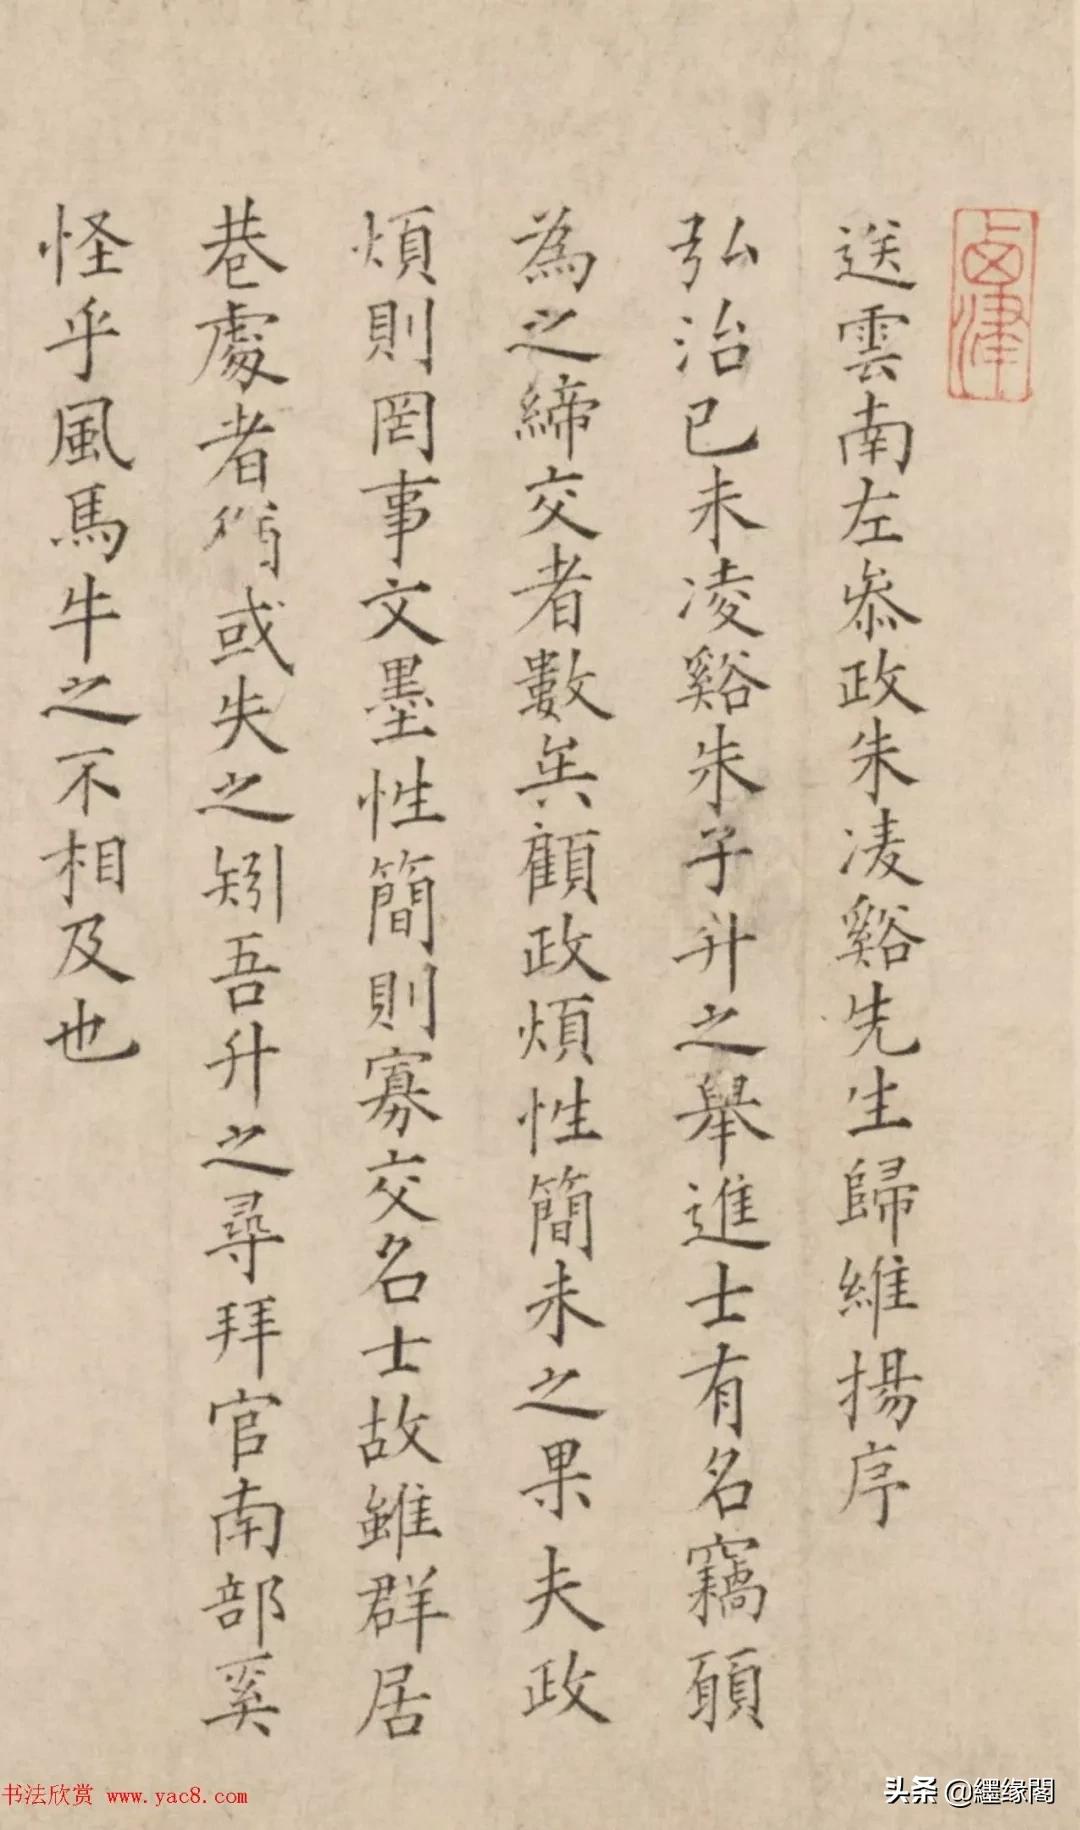 送雲南左叅政朱凌谿先生歸維揚序
弘治已未凌谿朱子升之舉進士有名竊願
為之締交者數矣顧政煩性簡未之果夫政
煩則罔事文墨性簡則寡交名士故雖群居
巷處者猶或失之矧吾升之尋拜官南部奚
怪乎風馬牛之不相及也
书法欣赏 www.yac8.com
头条 @繧缘閣